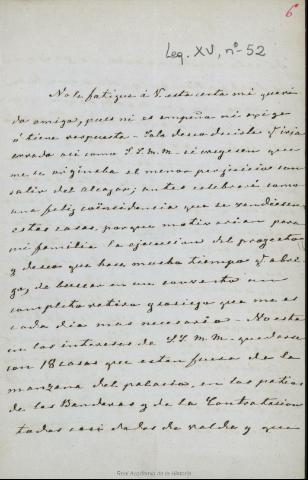 6
Leg. XV, nº 52
No le fatigue á V. esta carta mi queri-
do amigo, pues ni es empeño ni exige
ó tiene respuesta - Solo deseo decirle q.e iria
errado asi como SS.MM. si creyesen que
me se originaba el menor perjuicio con
salir del alcazar; antes celebraré como
una feliz coincidencia que se vendiesen
estas casas, porque motivarian para
mi familia la ejecucion del proyecto
y deseo que hace mucho tiempo q.e abri-
go, de buscar en un convento un
completo retiro y sosiego que me es
cada dia mas necesario - No está
en los intereses de SS.MM. quedarse
con 18 casas que estan fuera de la
manzana del palacio, en los patios
de las Banderas y de la Contratacion
todas casi dadas de valde y que
Real Academia de la Historia